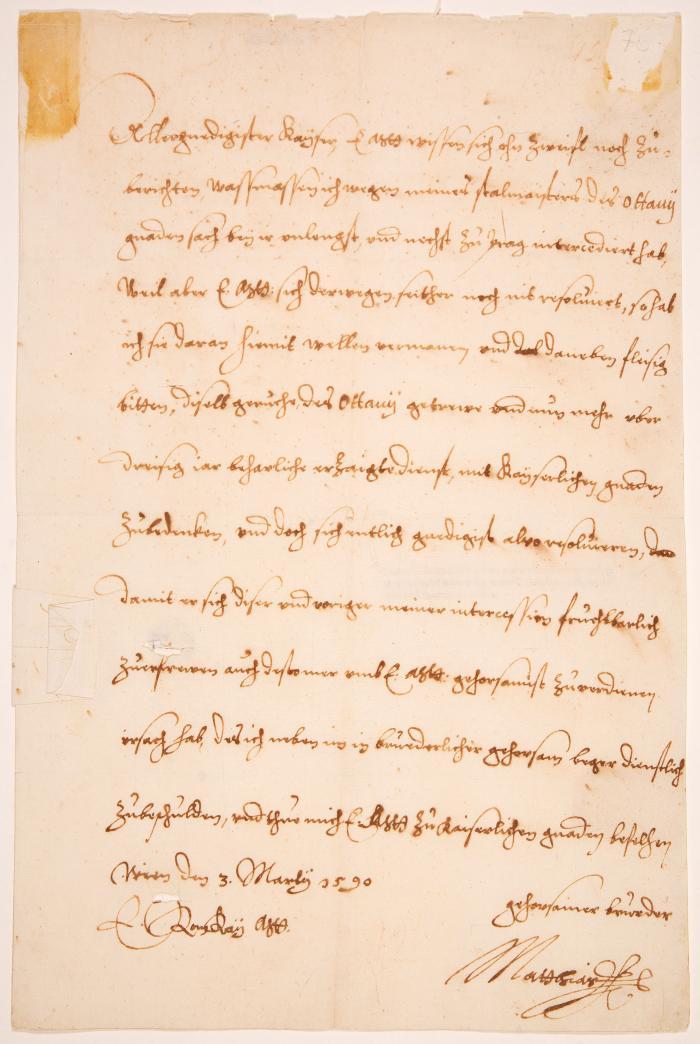 76
Allergnedigister Kayser, E. Mtt wissen sich ohn zweifl noch zu=
berichten, wassmassen ich wegen meines stalmaisters des Ottauij
gnaden sach bey ir unlengst, und nechst zu Prag intercediert hab,
Weil aber E. Mtt: sich derwegen seither noch nit resoluiert, so hab
ich sie daran hiemit wellen vermanen und daneben fleisig
bitten, dieselb geruche, des Ottauij getrewe und nun mehr vber
dreisig iar beharliche erzaigte dienst, mit Kayserlichen gnaden
zubedenken, und doch sich entlich gnedigist also resoluieren,
damit er sich diser und voriger meiner intercession fruchtbarlich
zuerfrewen auch destomer umb E. Mtt: gehorsamist zuverdienen
vrsach hab, des ich neben im in brüederlicher gehorsam beger dienstlich
zubeschulden, und thue mich E. Mtt zu Kaiserlichen gnaden befelhen
Wien den 3. Martij 1590
gehorsamer brueder
E. Röm Kay Mtt.
Matthias